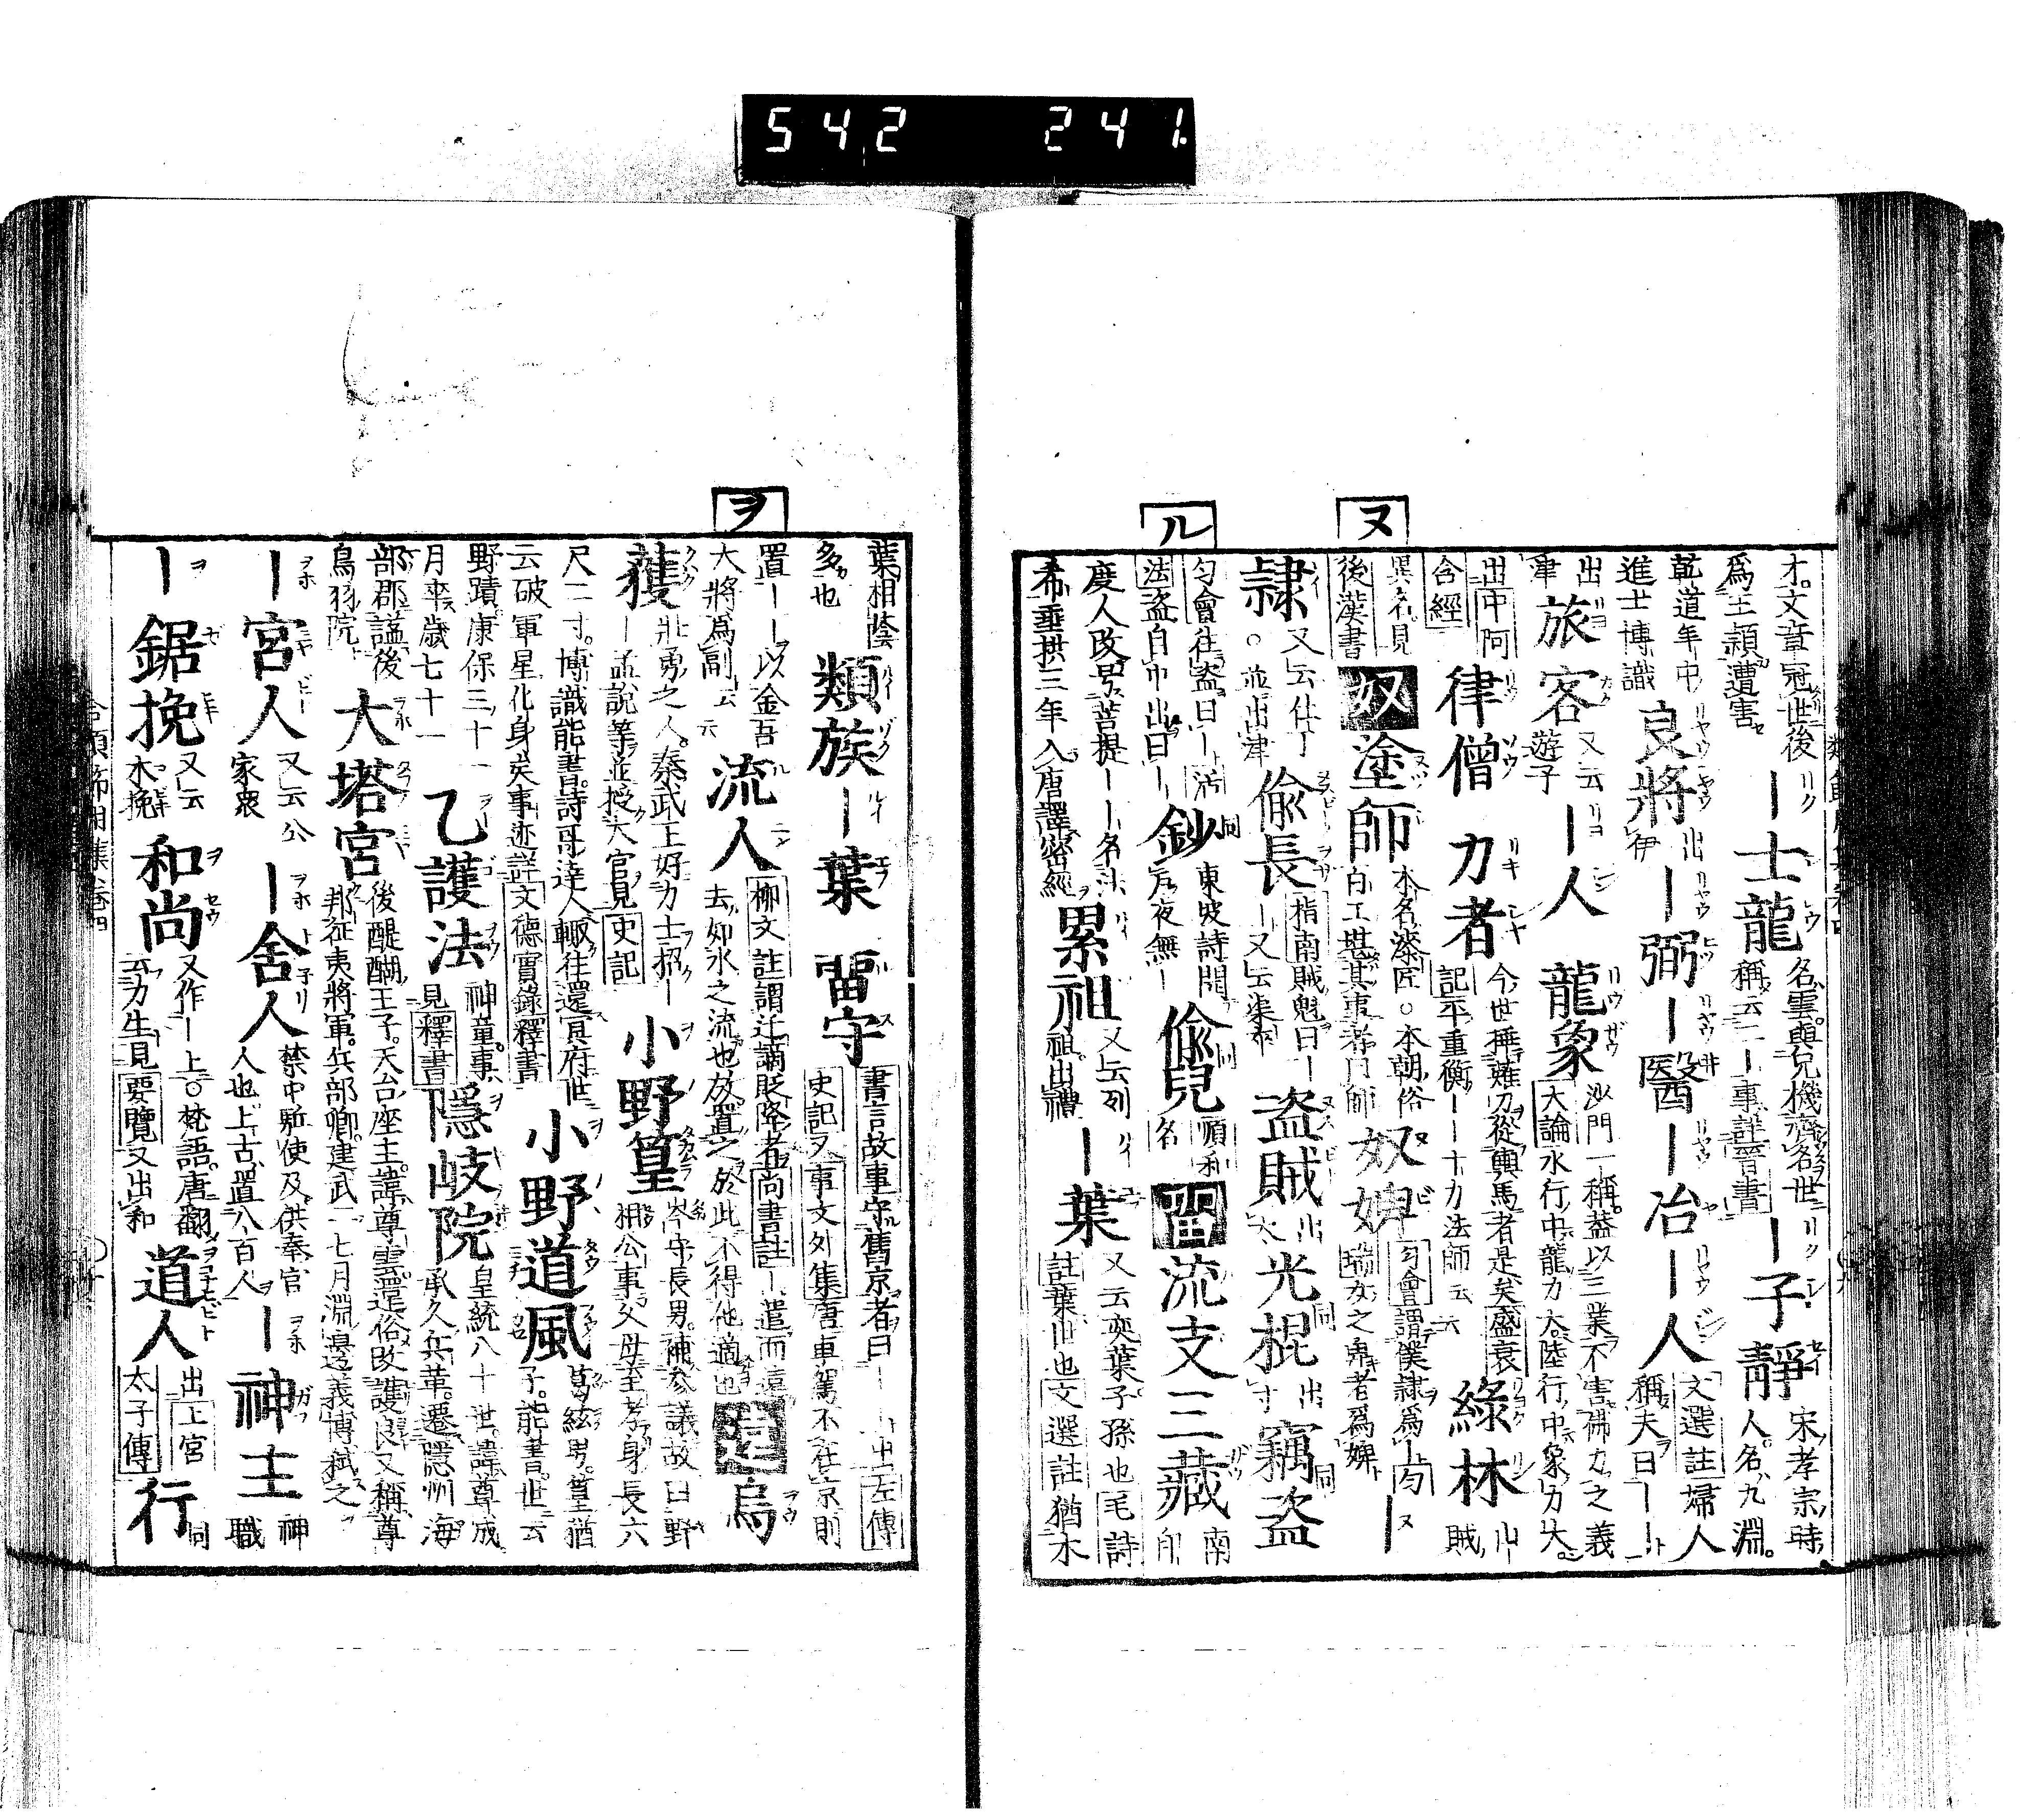 542 241
ヌ
ル
才。文章冠世後
爲王穎遭害
―士龍
名雲。與兄機齊名世
稱云二―事詳晉書
―子靜
宋孝宗時
人。名九淵。
乾道年中
進士博識
良將
出
伊
―弼
―醫
―冶―人
文選註婦人
稱夫曰――
出
聿
旅客
又云
遊子
―人
龍象
沙門一稱。蓋以三業不害佛力之義
大論水行中龍力大。陸行中象力大。
出中阿
含經
律僧
力者
今世挿雉刀從輿馬者是矣盛衰
記平重衡――十力法師云云
綠林
山―
賊
異名。見
後漢書
奴
塗師
本名漆匠。○本朝俗
白工堪其事者曰師
奴婢
匀會謂僕隷爲―匀
瑞女之卑者爲婢
―
隷
又云仕丁
○並出津
偸長
指南賊魁曰―
―又云渠帥
盜賊
出
大
光棍
出
寸
竊盜
同
匀會往盜曰―
法盜自中出曰―
鈔
同
東坡詩聞
戸夜無―
偸兒
同
順和
名
留
流支三藏
南
印
度人改号菩提――名
希垂拱三年入唐譯密經
累祖
又云列
祖。出禮
―葉
又云奕葉。子孫也毛詩
註葉世也文選註猶木
ヲ
葉相蔭
多也
類族
―葉
留守
書言故事守舊京者曰――出左傳
史記又事文外集唐車駕不在京則
置――以金吾
大將爲副云云
流人
柳文註謂迁謫貶降者尚書註―遣而遠
去如水之流也放置之於此不得他適也
遠
烏
獲
壯勇之人。秦武王好力士招―
―孟說等並授大官見史記
小野篁
岑守長男。補參議故曰野
相公事父母至孝身長六
尺二寸。博識能書。詩哥達人輙往還冥府世
云破軍星化身矣事迹詳文德實錄釋書
小野道風
葛絃男。篁猶
子。能書。世云
野蹟。康保三十一
月卒歲七十一
乙護法
神童事。
見釋書
隱岐院
皇統八十世。諱尊成
承久兵革。遷隱州海
部郡諡後
鳥羽院
大塔宮
後醍醐王子。天台座主。諱尊雲還俗改護良又稱尊
邦征夷將軍。兵部卿。建武二七月淵邊義博弑之
―宮人
又云公
家衆
―舍人
禁中駈使及供奉官
人也上古置八百人
―神主
神
職
―鋸挽
又云
木挽
和尚
又作―上○梵語。唐翻
云力生見要覽又出和
道人
出上宮
太子傳
行
同